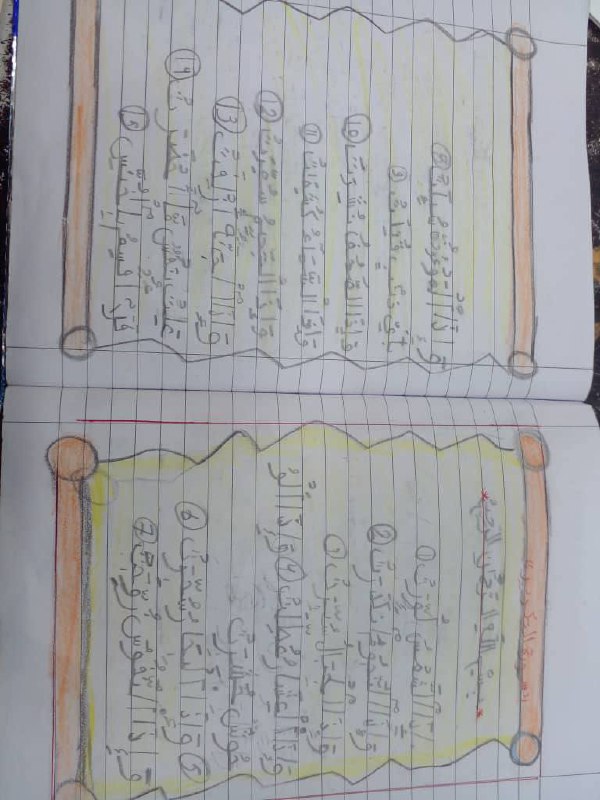 *بسم الله الرحمن الرحيم*
إِذَا الشَّمْسُ كُوِّرَتْ ①
وَإِذَا النُّجُومُ انْكَدَرَتْ ②
وَإِذَا الْجِبَالُ سُيِّرَتْ ③
وَإِذَا الْعِشَارُ عُطِّلَتْ ④ وَإِذَا الْوُ
حُوشُ حُشِرَتْ
⑤ وَإِذَا الْبِحَارُ سُجِّرَتْ ⑥
وَإِذَا النُّفُوسُ زُوِّجَتْ ⑦
وَإِذَا الْمَوْءُودَةُ سُئِلَتْ ⑧
بِأَيِّ ذَنْبٍ قُتِلَتْ ⑨
وَإِذَا الصُّحُفُ نُشِرَتْ ⑩
وَإِذَا السَّمَاءُ كُشِطَتْ ⑪
وَإِذَا الْجَحِيمُ سُعِّرَتْ ⑫
وَإِذَا الْجَنَّةُ أُزْلِفَتْ ⑬
عَلِمَتْ نَفْسٌ مَا أَحْضَرَتْ ⑭
فَلَا أُقْسِمُ بِالْخُنَّسِ ⑮